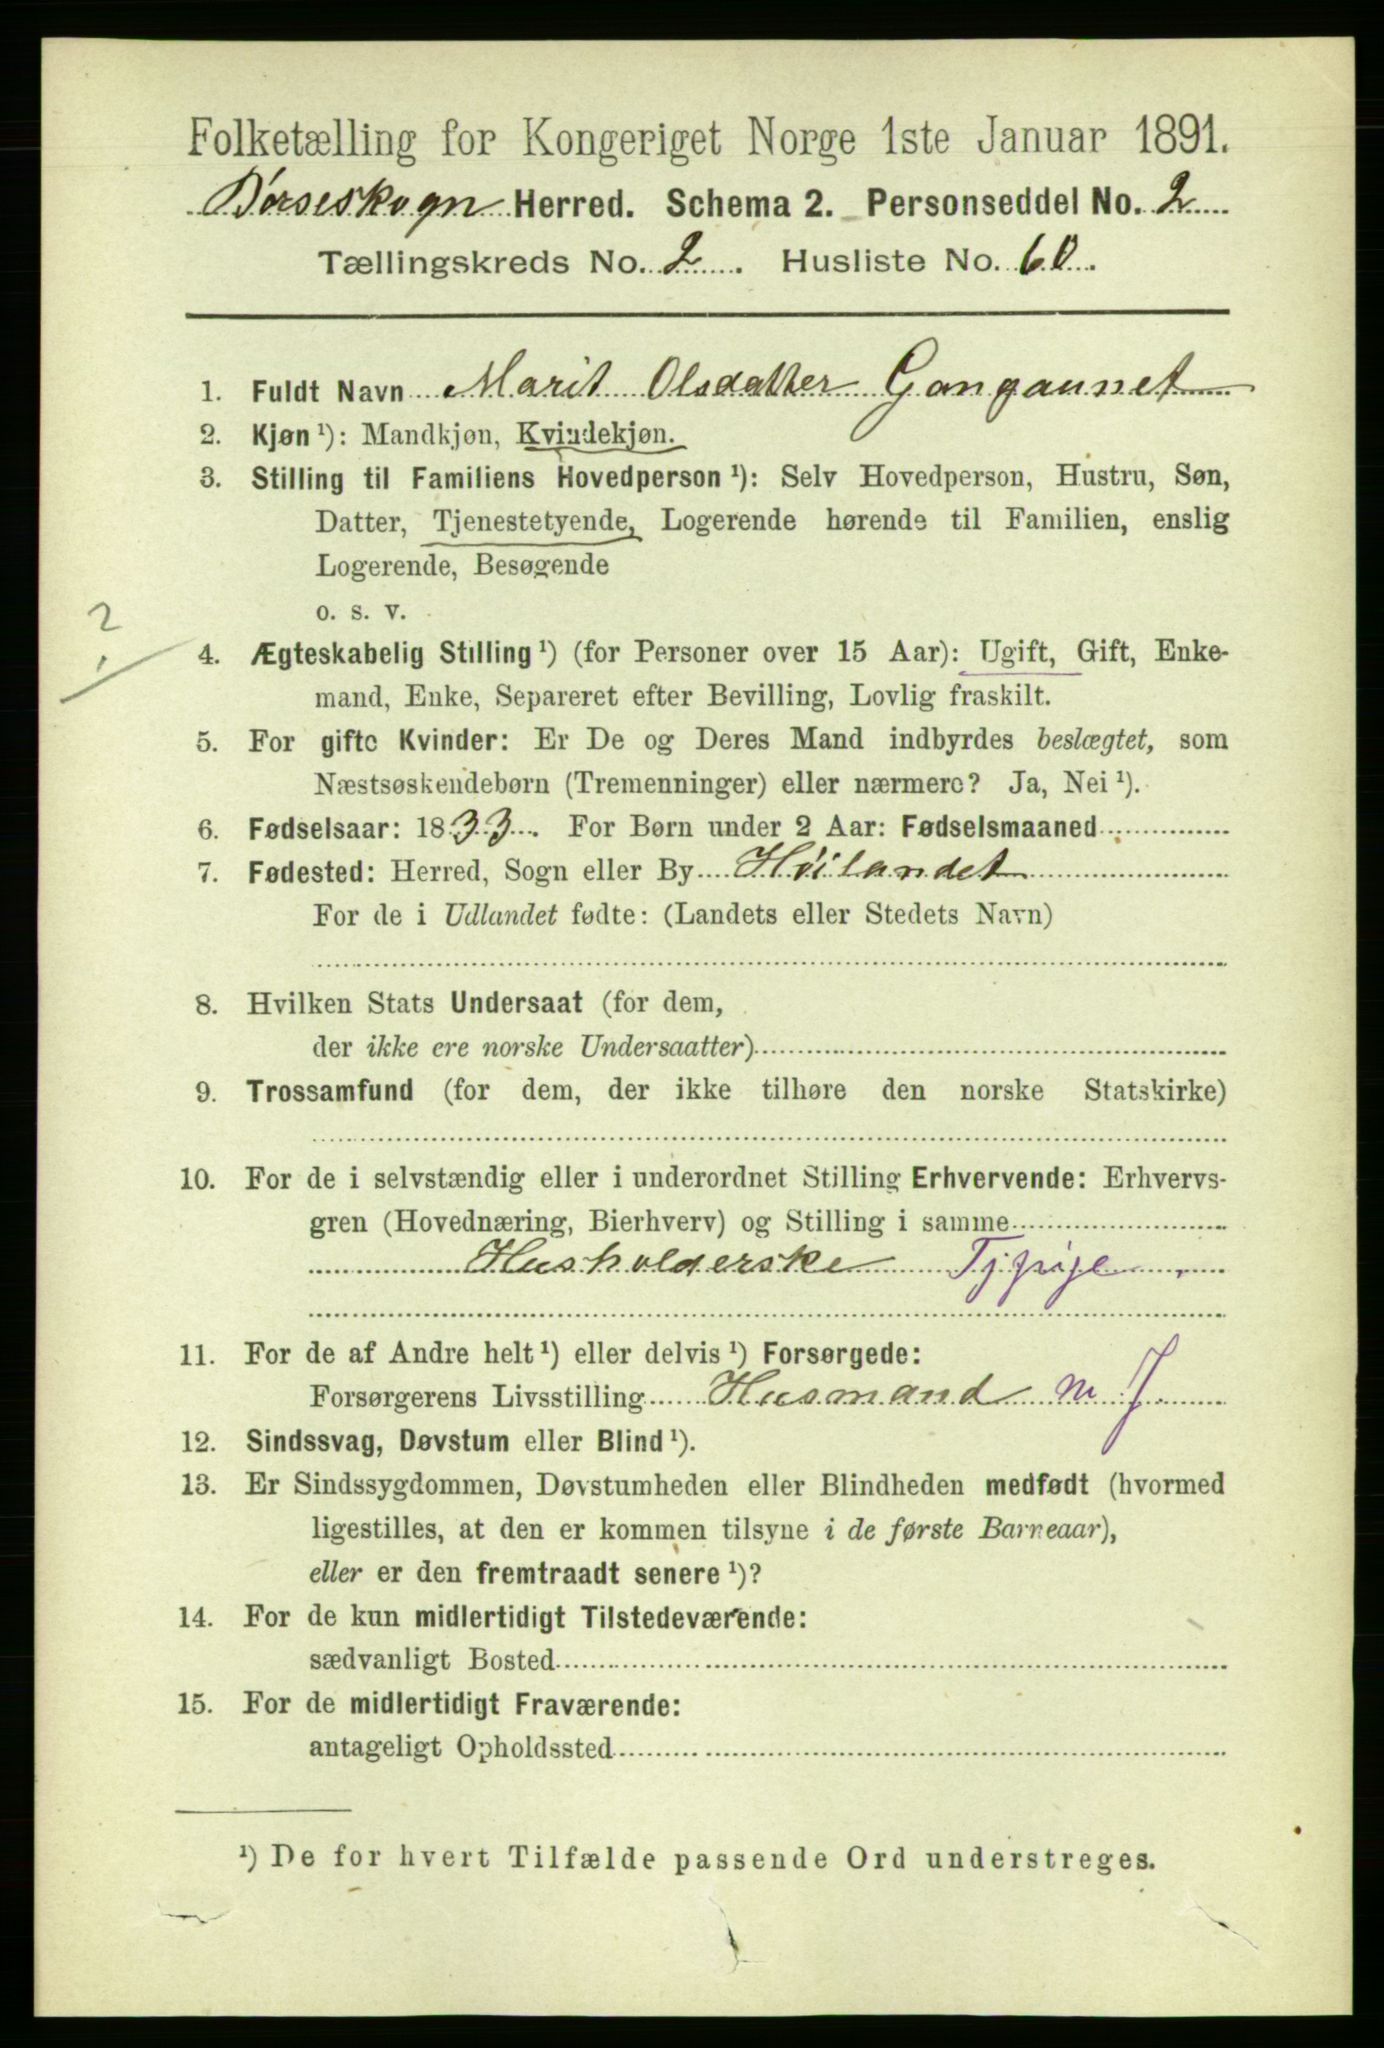 Folketælling for Kongeriget Norge 1ste Januar 1891.
Børseskogn Herred. Schema 2. Personseddel No. 2
Tællingskreds No. 2. Husliste No. 60.
1. Fuldt Navn Marit Olsdatter Gangaunet
2. Kjøn ¹): Mandkjøn, Kvindekjøn.
3. Stilling til Familiens Hovedperson ¹): Selv Hovedperson, Hustru, Søn,
Datter, Tjenestetyende, Logerende hørende til Familien, enslig
Logerende, Besøgende
o. s. v.
?
4. Ægteskabelig Stilling ¹) (for Personer over 15 Aar): Ugift, Gift, Enke-
mand, Enke, Separeret efter Bevilling, Lovlig fraskilt.
5. For gifte Kvinder: Er De og Deres Mand indbyrdes beslægtet, som
Næstsøskendebørn (Tremenninger) eller nærmere? Ja, Nei ¹).
6. Fødselsaar: 1833. For Børn under 2 Aar: Fødselsmaaned
7. Fødested: Herred, Sogn eller By Høilandet
For de i Udlandet fødte: (Landets eller Stedets Navn)
8. Hvilken Stats Undersaat (for dem,
der ikke ere norske Undersaatter)
9. Trossamfund (for dem, der ikke tilhøre den norske Statskirke)
10. For de i selvstændig eller i underordnet Stilling Erhvervende: Erhvervs-
gren (Hovednæring, Bierhverv) og Stilling i samme
Husholderske Tjpige
11. For de af Andre helt ¹) eller delvis ¹) Forsørgede:
Forsørgerens Livsstilling Husmand m J.
12. Sindssvag, Døvstum eller Blind ¹).
13. Er Sindssygdommen, Døvstumheden eller Blindheden medfødt (hvormed
ligestilles, at den er kommen tilsyne i de første Barneaar),
eller er den fremtraadt senere ¹)?
14. For de kun midlertidigt Tilstedeværende:
sædvanligt Bosted
15. For de midlertidigt Fraværende:
antageligt Opholdssted
¹) De for hvert Tilfælde passende Ord understreges.